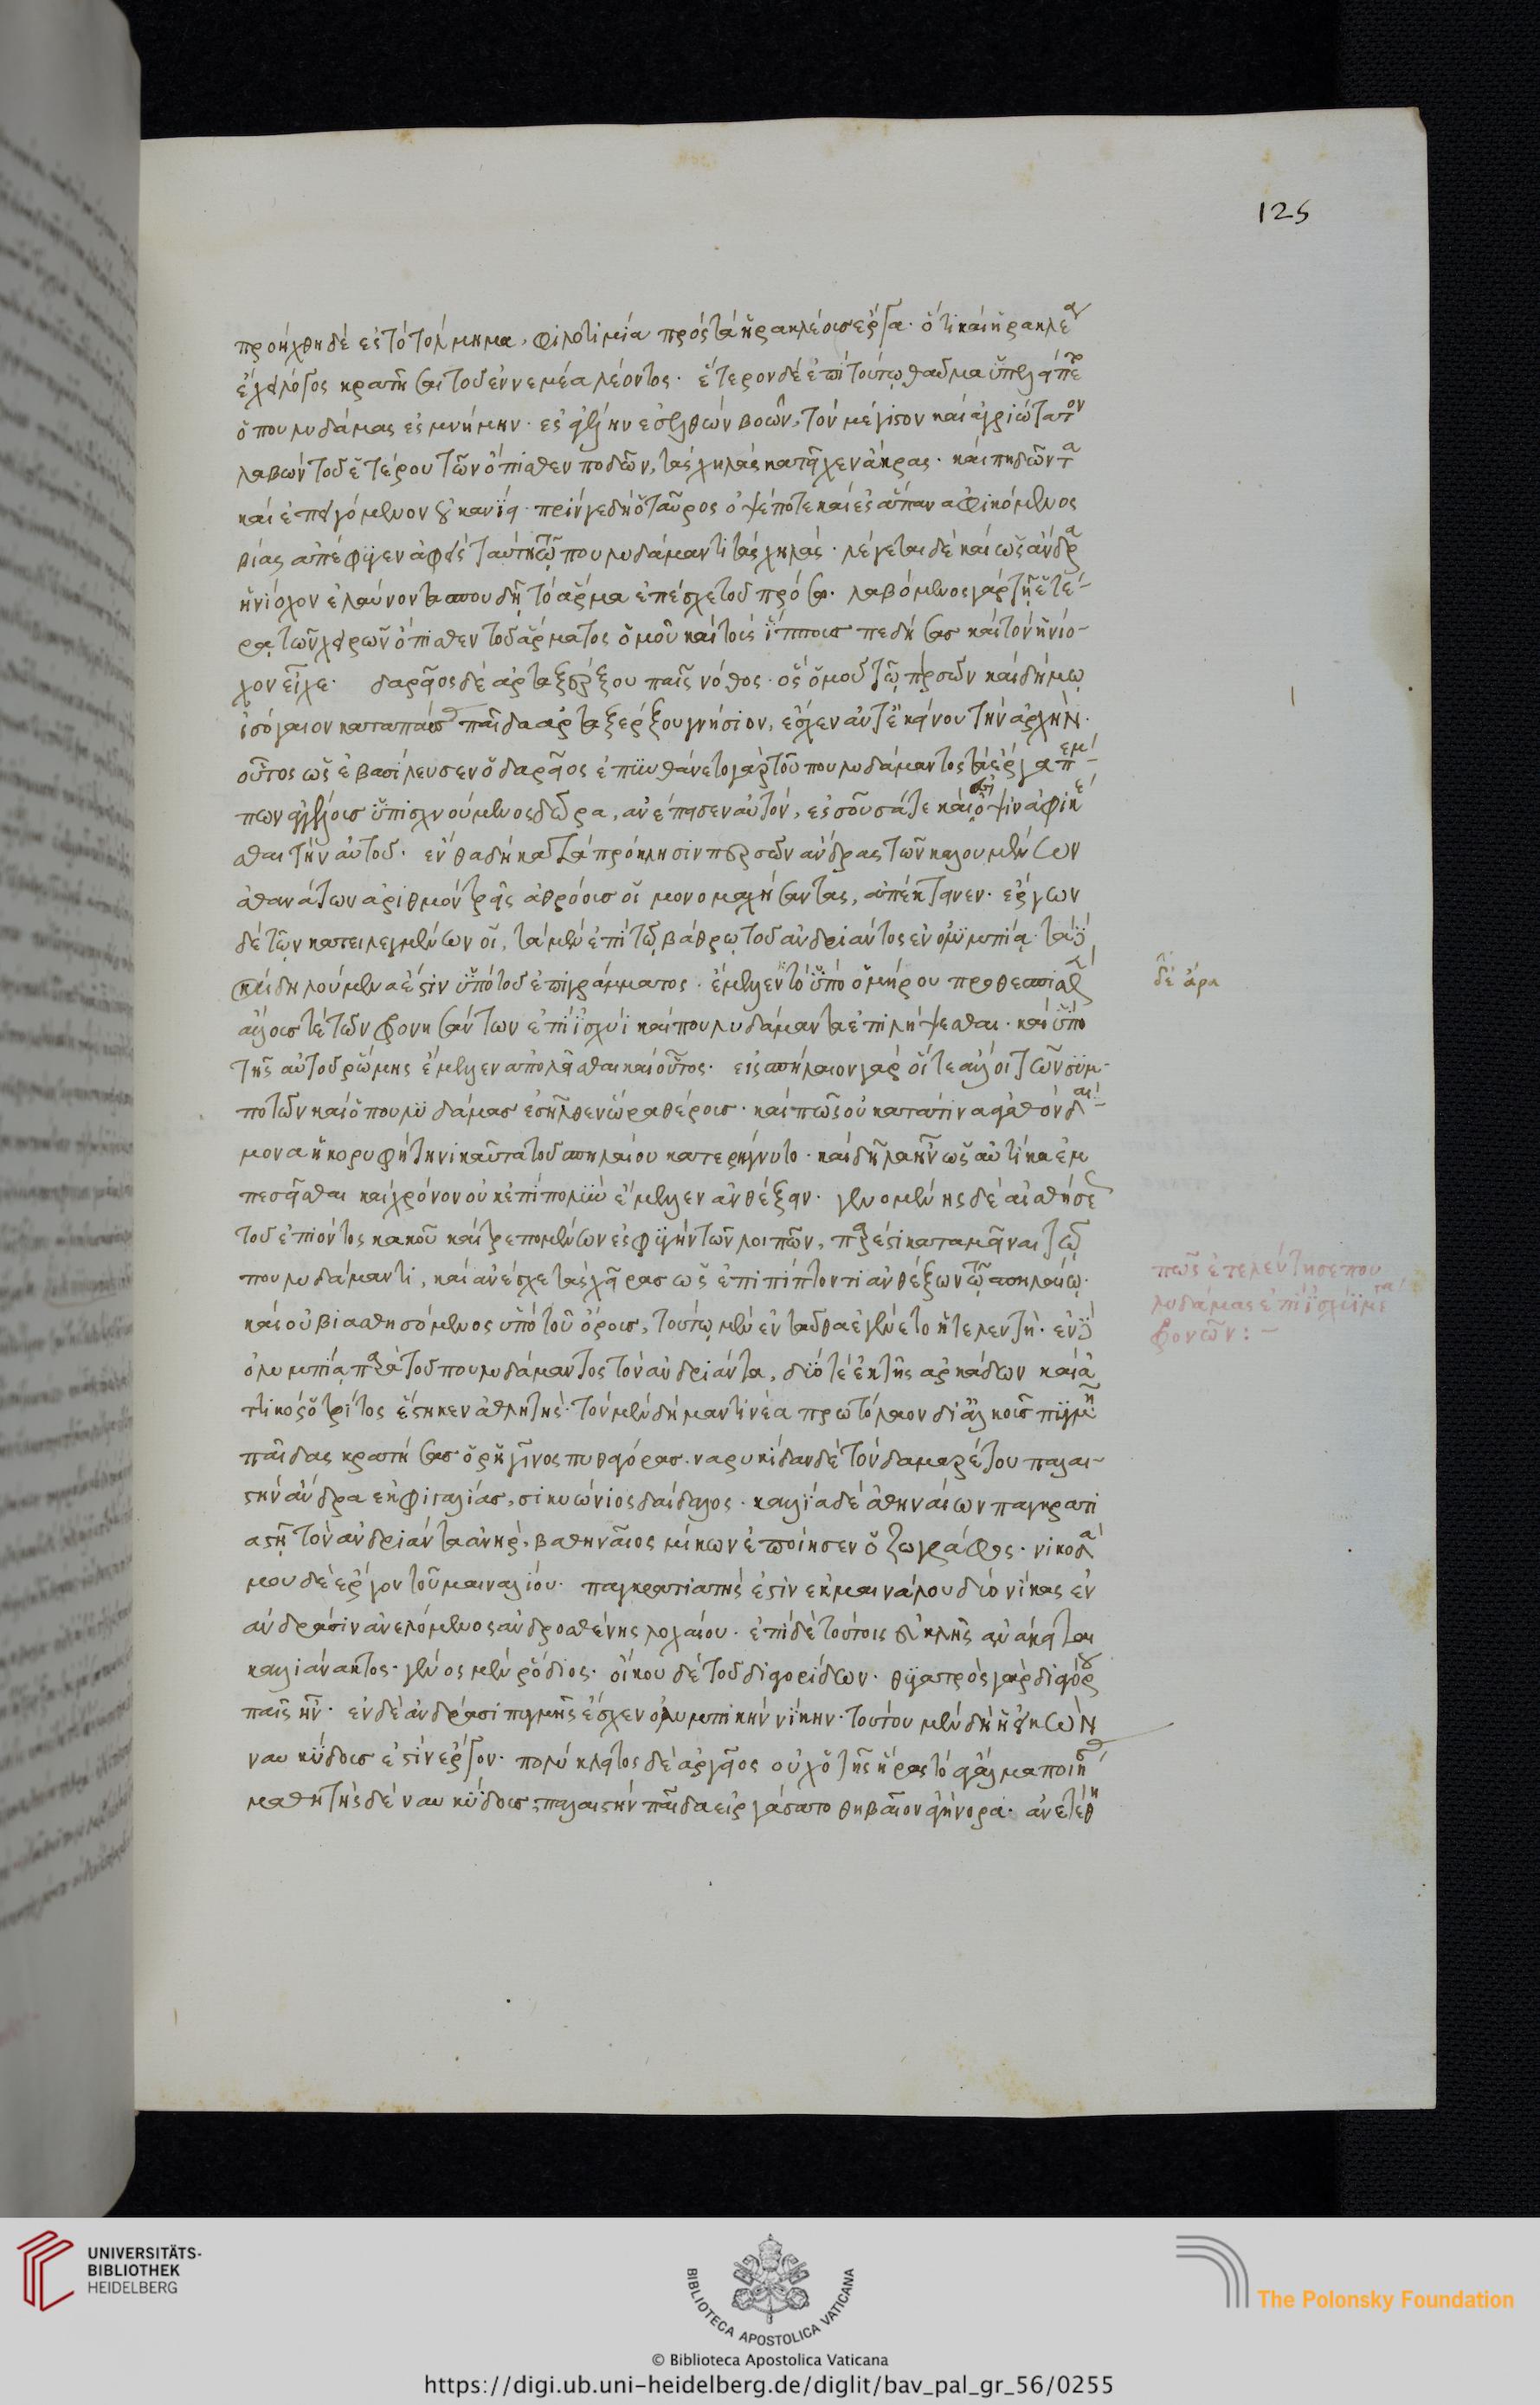 125
προήχθη δὲ ἐς τὸ τόλμημα, φιλοτιμία πρὸς τὰ ἡρακλέους ἔργα. ὅτι καὶ ἡρακλέα
ἔχει λόγος κρατῆσαι τοῦ ἐν νεμέα λέοντος. ἕτερον δὲ ἐπὶ τούτω θαῦμα ὑπελείπετο
ὁ πουλυδάμας ἐς μνήμην. ἐς ἀγέλην ἐσελθὼν βοῶν, τὸν μέγιστον καὶ ἀγριώτατον
λαβὼν τοῦ ἑτέρου τῶν ὄπισθεν ποδῶν, τὰς χηλὰς κατεῖχεν ἄκρας. καὶ πηδῶντα
καὶ ἐπειγόμενον οὐκ ἀνίει. πρίν γε δὴ ὁ ταῦρος ὀψέ ποτε καὶ ἐς ἅπαν ἀφικόμενος
βίας ἀπέφυγεν ἀφεὶς ταύτη τῶ πουλυδάμαντι τὰς χηλάς. λέγεται δὲ καὶ ὡς ἄνδρα
ἡνίοχον ἐλαύνοντα σπουδῆ τὸ ἅρμα ἐπέσχε τοῦ πρόσω. λαβόμενος γὰρ τῆ ἑτέ-
ρα τῶν χειρῶν ὄπισθεν τοῦ ἅρματος ὁμοῦ καὶ τοὺς ἵππους πεδήσας καὶ τὸν ἡνίο-
χον εἶχε. δαρεῖος δὲ ἀρταξέρξου παῖς νόθος. ὃς ὁμοῦ τῶ περσῶν καὶ δήμω
ἰσόγαιον καταπαύσας παῖδα ἀρταξέρξου γνήσιον, ἔσχεν ἀντ' ἐκείνου τὴν ἀρχήν.
οὗτος ὡς ἐβασίλευσεν ὁ δαρεῖος ἐπυνθάνετο γὰρ τοῦ πουλυδάμαντος τὰ ἔργα πέμ-
πων ἀγγέλους ὑπισχνούμενος δῶρα, ἀνέπεισεν αὐτόν, ἐς σοῦσά τε καὶ ὄψιν ἀφικέ
σθαι τὴν αὐτοῦ. ἔνθα δὴ κατὰ πρόκλησιν περσῶν ἄνδρας τῶν καλουμένων
ἀθανάτων ἀριθμὸν τρεῖς ἀθρόους οἱ μονομαχήσαντας, ἀπέκτεινεν. ἔργων
δὲ τῶν κατειλεγμένων οἱ, τὰ μὲν ἐπὶ τῶ βάθρω τοῦ ἀνδριάντος ἐν ὀλυμπία. τὰ δὲ
καὶ δηλούμενά ἐστιν ὑπὸ τοῦ ἐπιγράμματος. ἔμελλεν τὸ ὑπὸ ὁμήρου προθεσπισθὲν
ἄλλους τε τῶν φρονησάντων ἐπὶ ἰσχύι καὶ πουλυδάμαντα ἐπιλήψεσθαι. καὶ ὑπὸ
τῆς αὑτοῦ ῥώμης ἔμελλεν ἀπολεῖσθαι καὶ οὗτος. εἰς σπήλαιον γὰρ οἵ τε ἄλλοι τῶν συμ-
ποτῶν καὶ ὁ πουλυδάμας ἐσῆλθεν ὥρα θέρους. καί πως οὐ κατά τινα ἀγαθὸν δαί-
μονα ἡ κορυφὴ τηνικαῦτα τοῦ σπηλαίου κατερήγνυτο. καὶ δῆλα ἦν ὡς αὐτίκα ἐμ
πεσεῖσθαι καὶ χρόνον οὐκ ἐπὶ πολὺν ἔμελλεν ἀνθέξειν. γενομένης δὲ αἰσθήσεως
τοῦ ἐπιόντος κακοῦ καὶ τρεπομένων ἐς φυγὴν τῶν λοιπῶν, παρέστι καταμεῖναι τῶ
πουλυδάμαντι, καὶ ἀνέσχε τὰς χεῖρας ὡς ἐπιπίπτοντι ἀνθέξων τῶ σπηλαίω.
καὶ οὐ βιασθησόμενος ὑπὸ τοῦ ὄρους, τούτω μὲν ἐνταῦθα ἐγένετο ἡ τελευτή. ἐν δὲ
ὀλυμπία παρὰ τοῦ πουλυδάμαντος τὸν ἀνδριάντα, δύο τε ἐκ τῆς ἀρκάδων καὶ ἀτ
τικὸς ὁ τρίτος ἕστηκεν ἀθλητής. τὸν μὲν δὴ μαντινέα πρωτόλαον διαλκοῦς πυγμῆ
παῖδας κρατήσας ὁ ῥηγῖνος πυθαγόρας. ναρυκίδαν δὲ τὸν δαμαρέτου παλαι-
στὴν ἄνδρα ἐκ φιγαλίας, σικυώνιος δαίδαλος. καλλία δὲ ἀθηναίων παγκρατι
αστῆ τὸν ἀνδριάντα ἀνὴρ, βαθηναῖος μίκων ἐποίησεν ὁ ζωγράφος. νικοδά
μου δὲ ἔργον τοῦ μαιναλίου. παγκρατιαστής ἐστιν ἐκ μαινάλου δύο νίκας ἐν
ἀνδράσιν ἀνελόμενος ἀνδροσθένης λοχαίου. ἐπὶ δὲ τούτοις εὐκλῆς ἀνάκειται
καλλιάνακτος. γένος μὲν ῥόδιος. οἴκου δὲ τοῦ διαγοριδῶν. θυγατρὸς γὰρ διαγόρου
παῖς ἦν. ἐν δὲ ἀνδράσι πυγμῆς ἔσχεν ὀλυμπικὴν νίκην. τούτου μὲν δὴ ἡ εἰκὼν
ναυκύδους ἐστὶν ἔργον. πολύκλειτος δὲ ἀργεῖος οὐχ ὁ τῆς ἥρας τὸ ἄγαλμα ποιήσας
μαθητὴς δὲ ναυκύδους, παλαιστὴν παῖδα εἰργάσατο θηβαῖον ἀγήνορα. ἀνετέθη
δὲ ἄρα
πῶς ἐτελεύτησε που
λυδάμας ἐπὶ ἰσχύϊ μέγα
φρονῶν:-
UNIVERSITÄTS-
BIBLIOTHEK
HEIDELBERG
BIBLIOTECA APOSTOLICA VATICANA
The Polonsky Foundation
© Biblioteca Apostolica Vaticana
https://digi.ub.uni-heidelberg.de/diglit/bav_pal_gr_56/0255